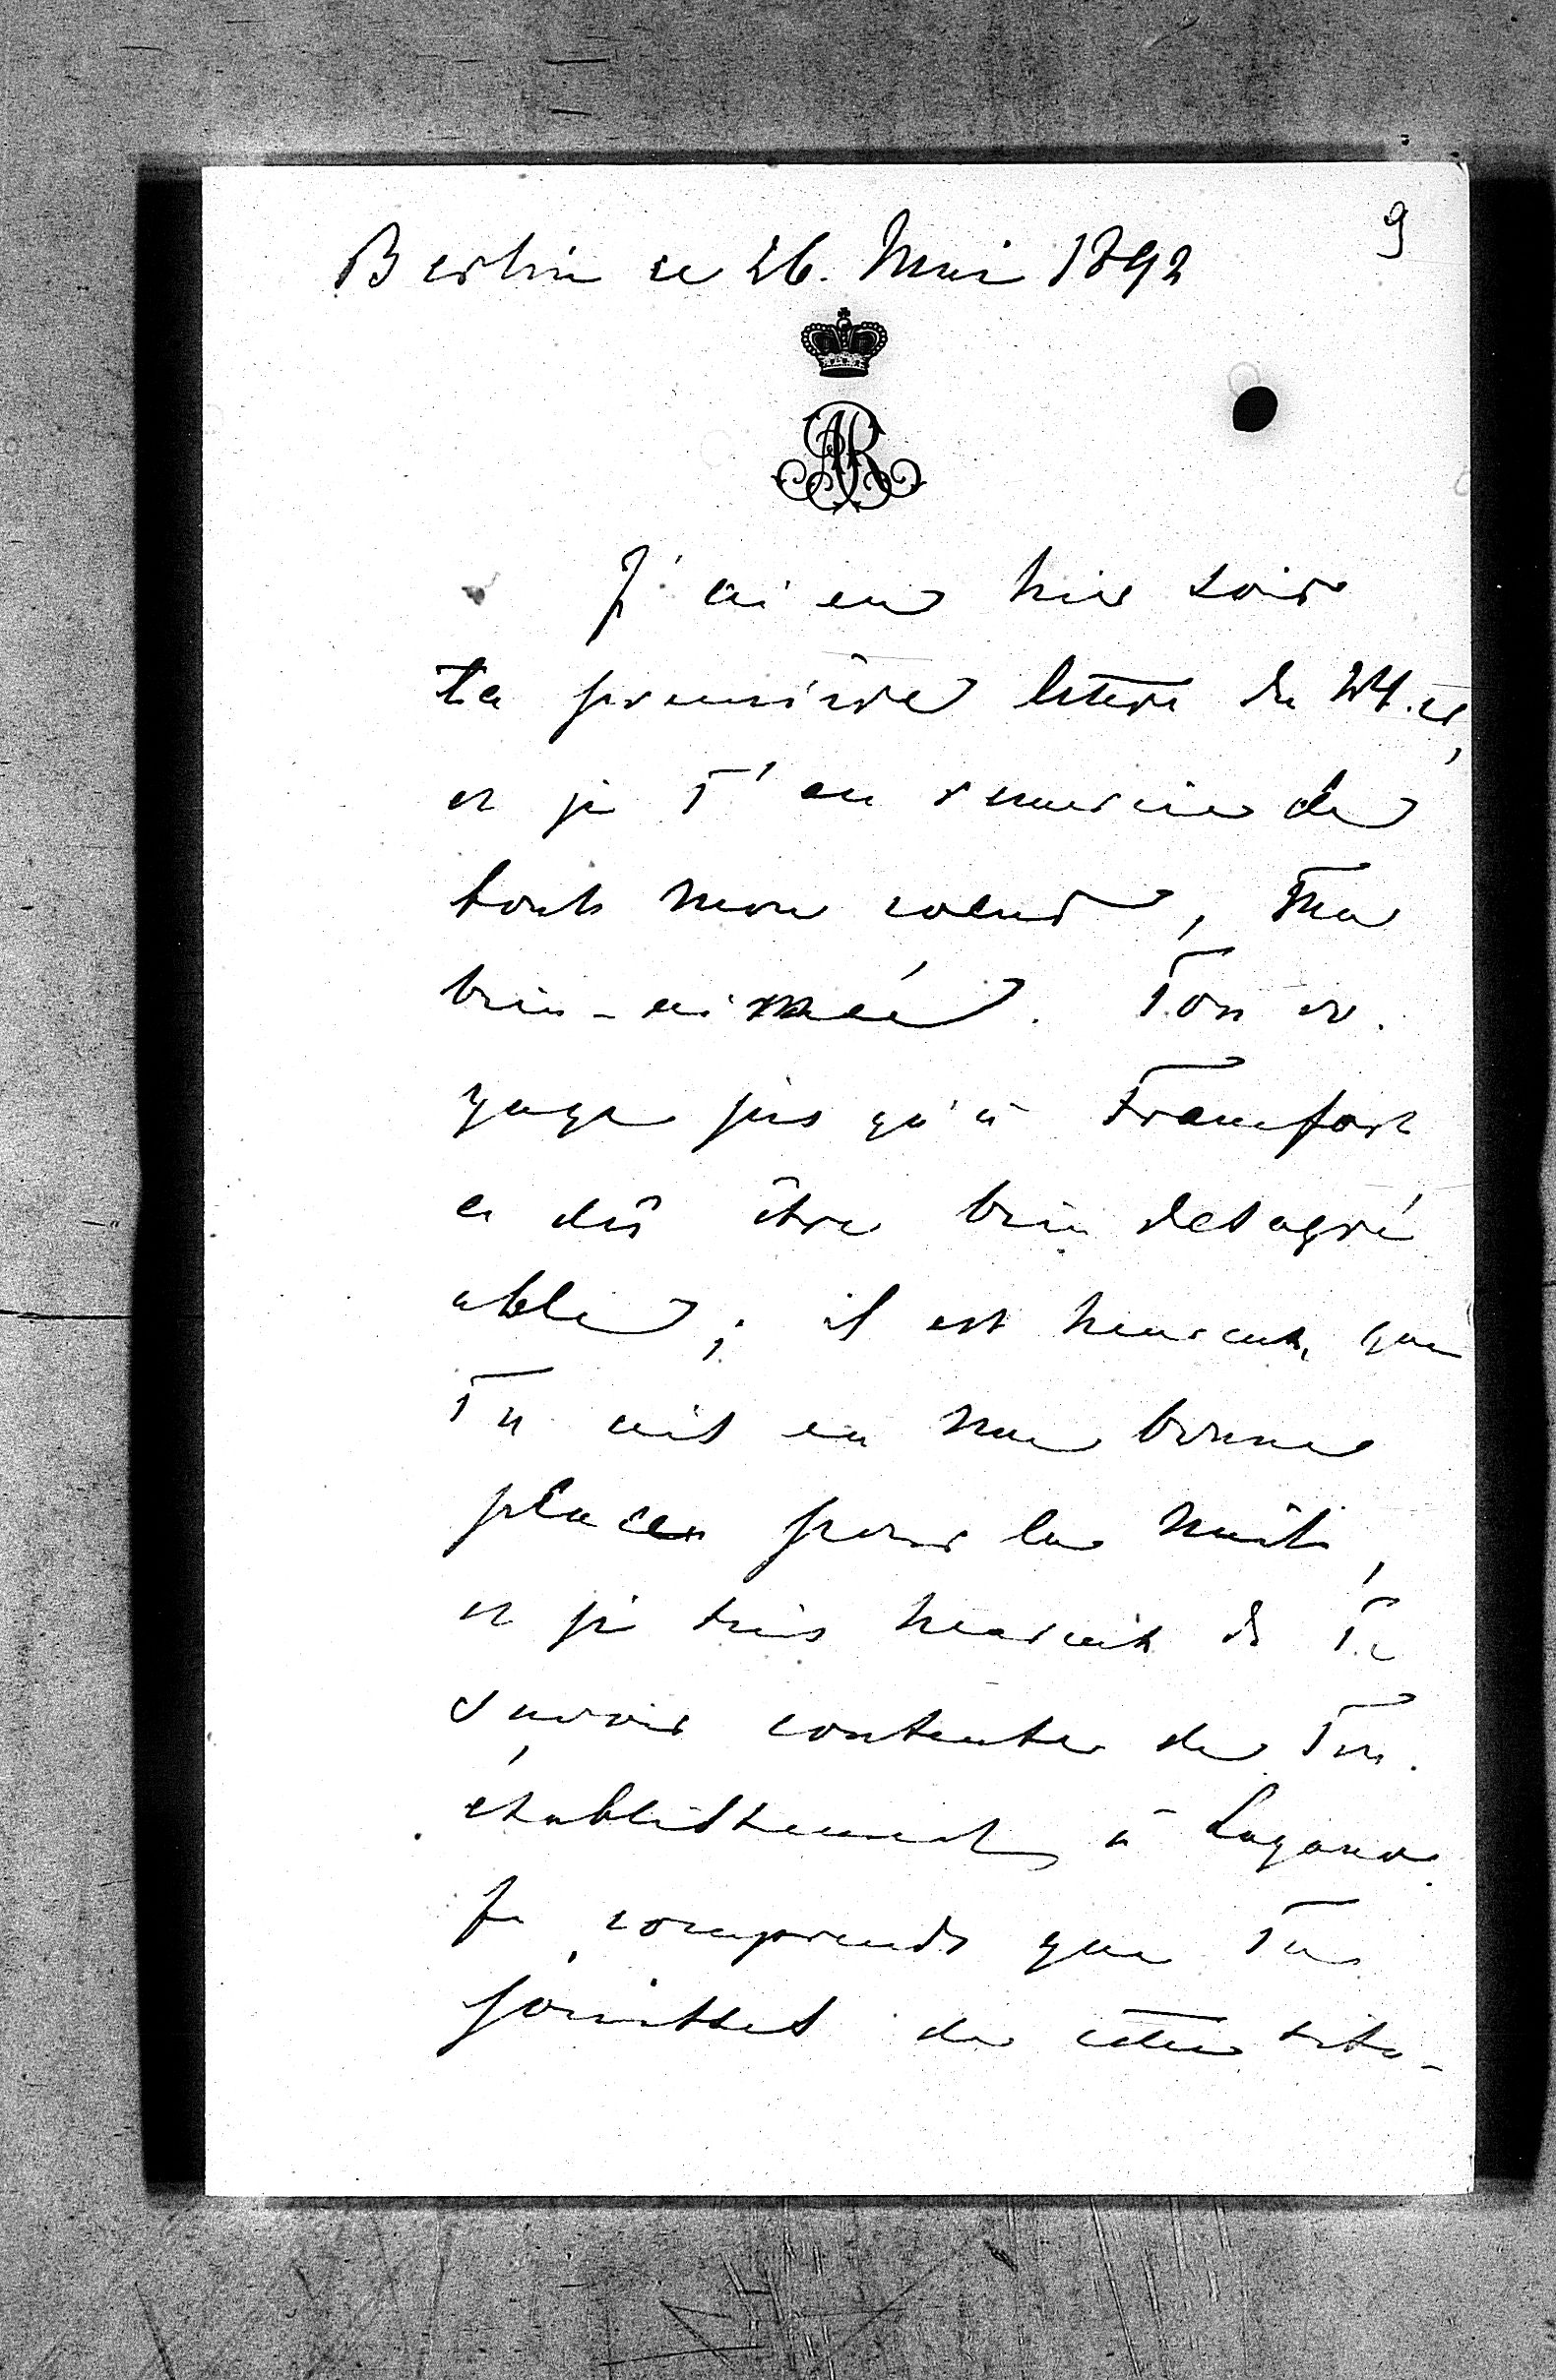 Berlin ce 26. Mai 1892
9
AR
J'ai eu hier soir
ta première lettre du 24. ct,
et je T'en remercie de
tout mon coeur, ma
bien-aimée. Ton vo-
yage jusqu'à Francfort
a dû être bien desagré
able; il est heureux que
Tu ais eu une bonne
place pour la nuit,
et je suis heureux de Te
savoir contente de Ton
établissement à Lugano.
Je comprends que Tu
jouisses de cette situ-